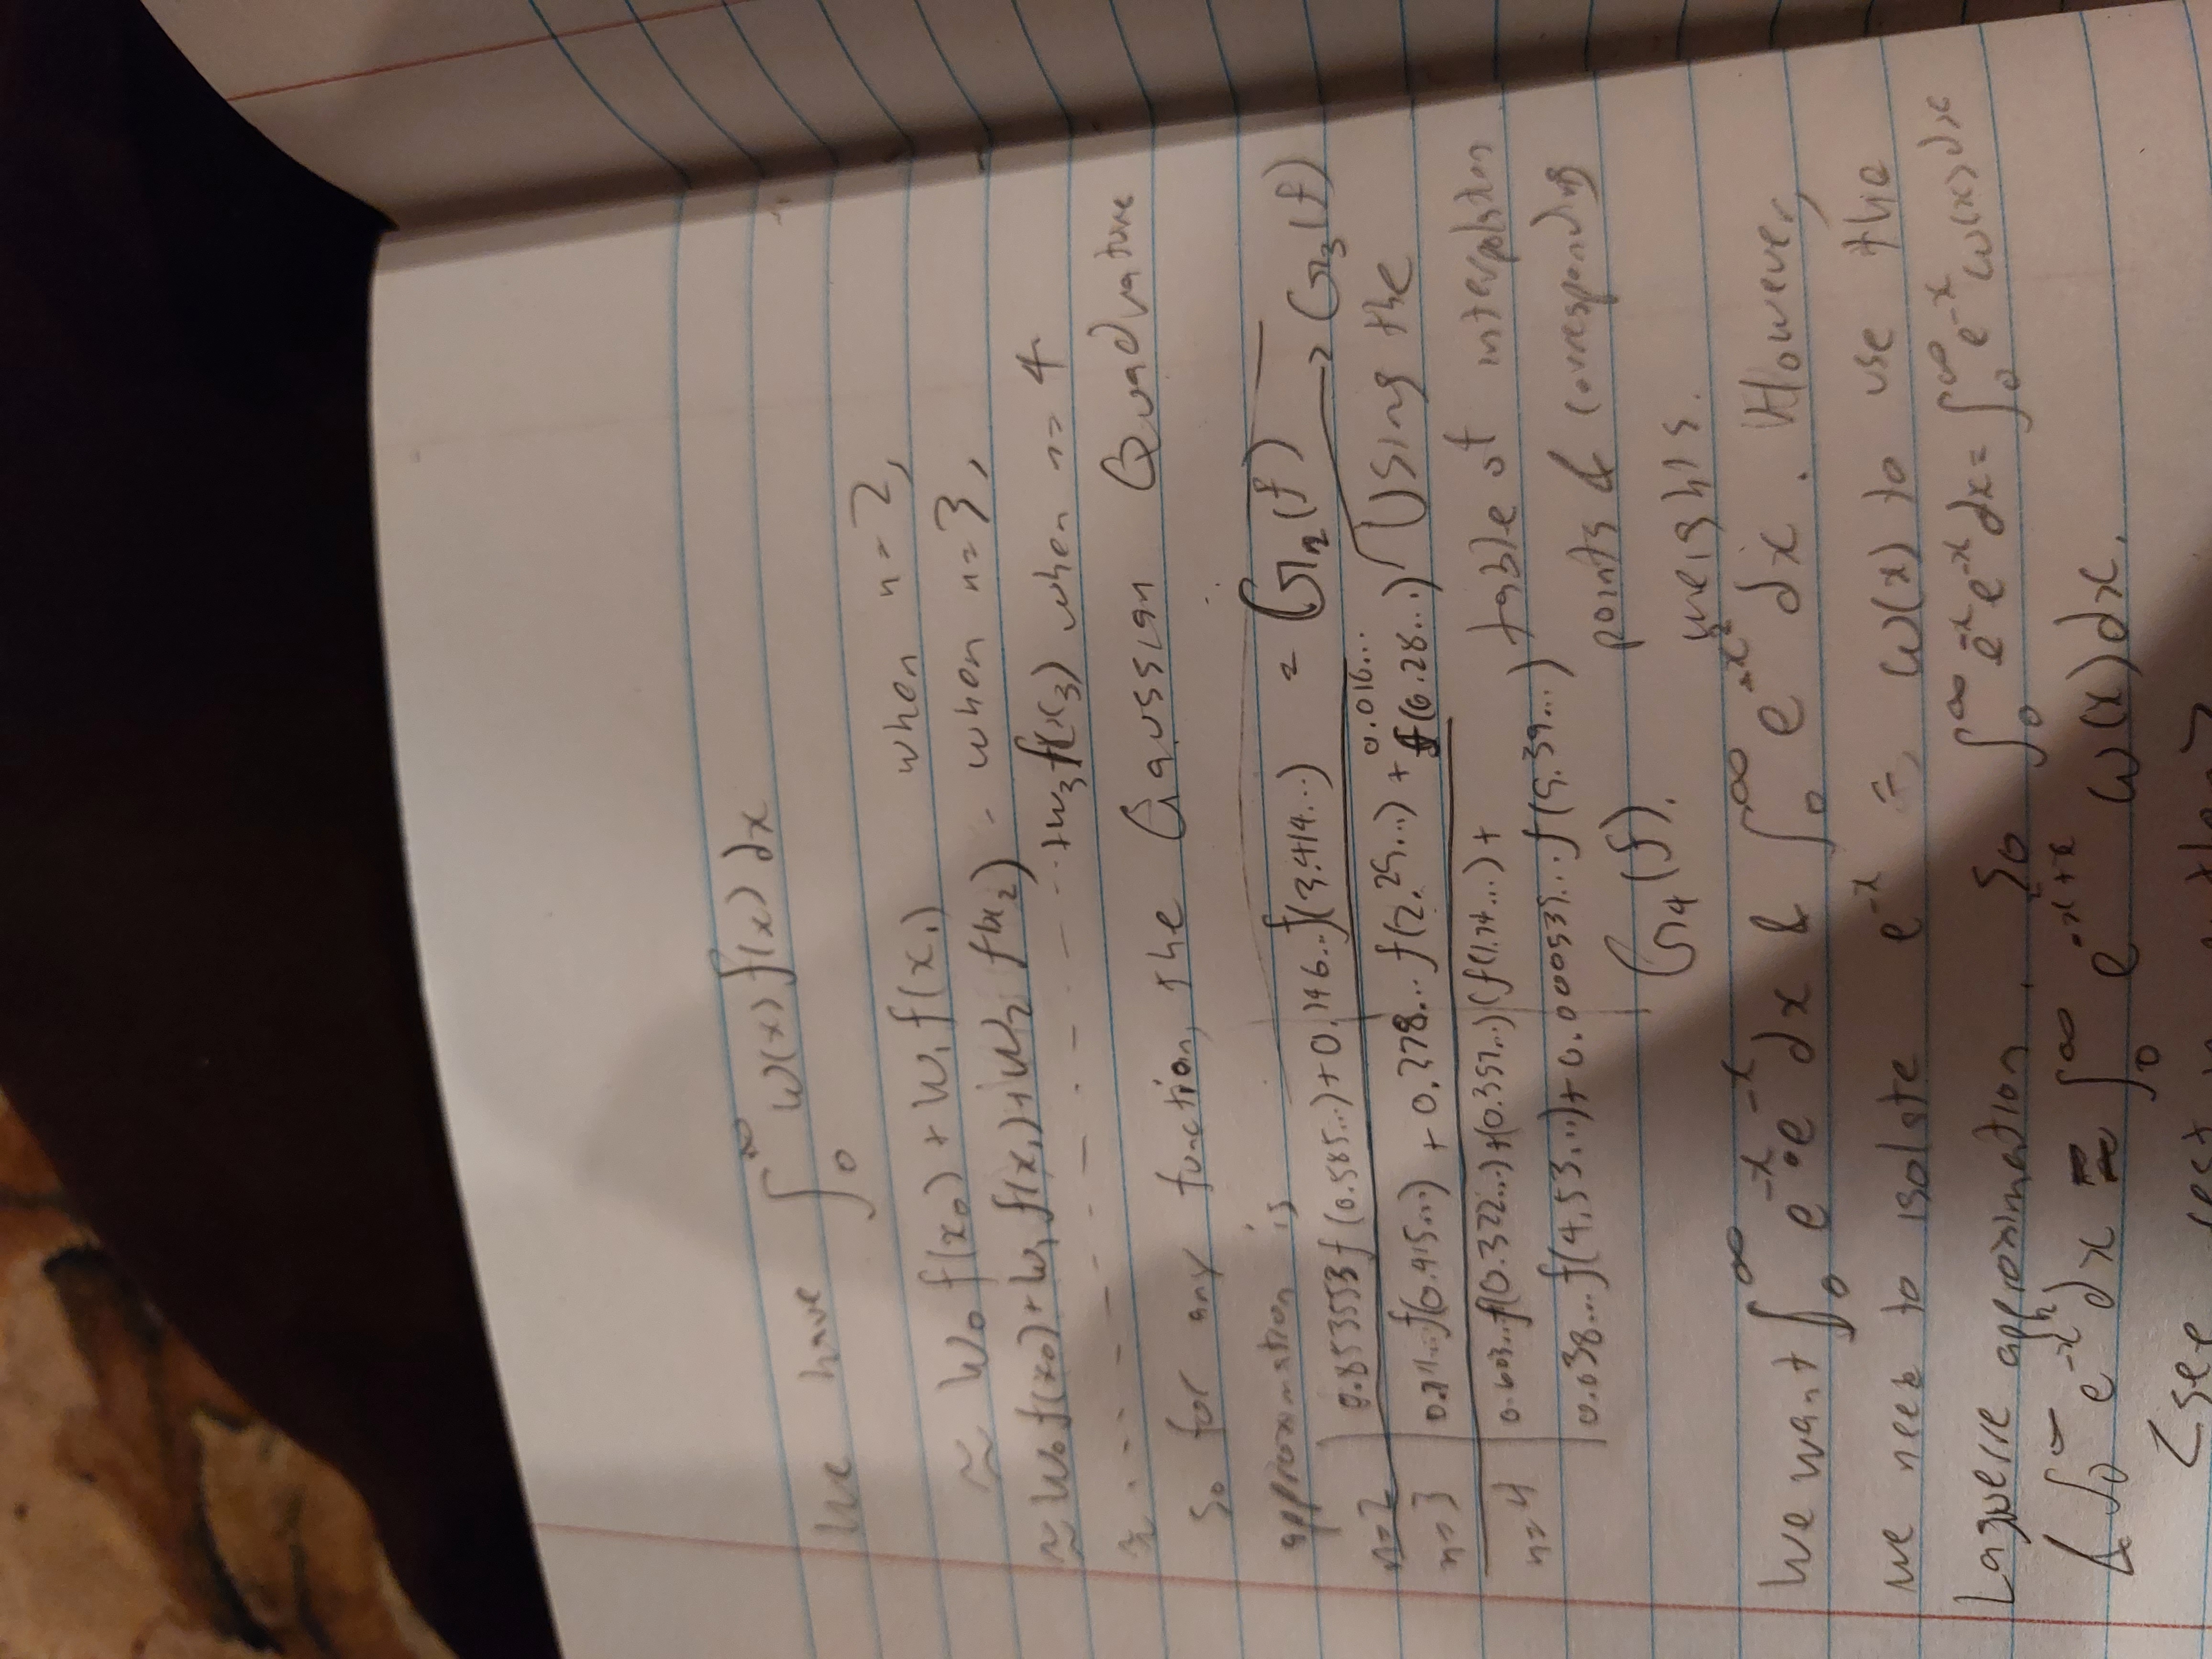 We have ∫_0^∞ w(x) f(x) dx
≈ W_0 f(x_0) + W_1 f(x_1) when n = 2,
≈ W_0 f(x_0) + W_1 f(x_1) + W_2 f(x_2) - when n = 3,
≈ . . . - - - . - - - - ... + w_3 f(x_3) when n = 4
So for any function, the Gaussian Quadrature
approximation is
n=2 | 0.853553 f(0.585...) + 0.146... f(3.414...) = G_2(f)
n=3 | 0.711... f(0.415...) + 0.278... f(2.29...) + 0.010... f(6.28...) → G_3(f)
n=4 | 0.603... f(0.322...) + (0.357...) (f(1.74...) +
0.038... f(4.53...) + 0.000539... f(9.39...)
G_4(f).
Using the
table of interpolation
points & corresponding
weights.
We want ∫_0^∞ e^{-x} · e^{-x} dx & ∫_0^∞ e^{-x^2} dx. However,
we need to isolate e^{-x} = w(x) to use the
Laguerre approximation. So ∫_0^∞ e^{-x} e^{-x} dx = ∫_0^∞ e^{-x} w(x) dx
& ∫_0^∞ e^{-x^2} dx = ∫_0^∞ e^{-x^2+x} w(x) dx.
<see rest